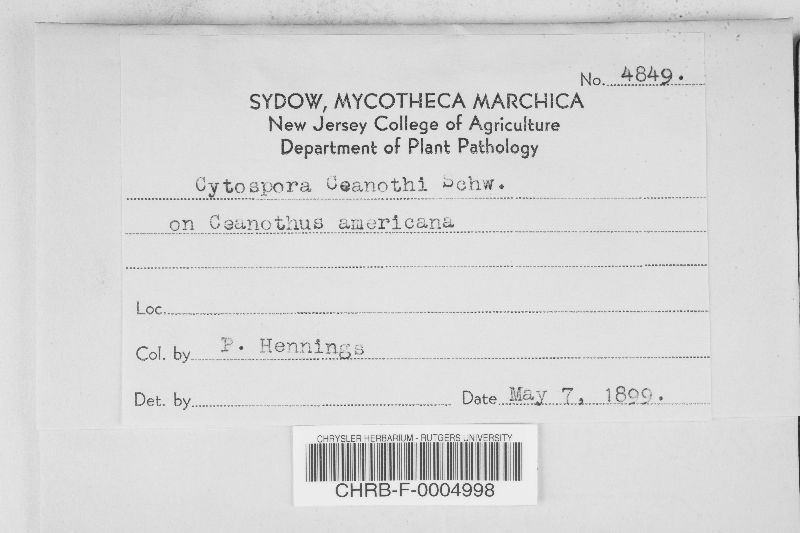 No. 4849.
SYDOW, MYCOTHECA MARCHICA
New Jersey College of Agriculture
Department of Plant Pathology
Cytospora Ceanothi Schw.
on Ceanothus americana
Loc.
Col. by P. Hennings
Det. by Date May 7, 1899.
CHRYSLER HERBARIUM - RUTGERS UNIVERSITY
CHRB-F-0004998